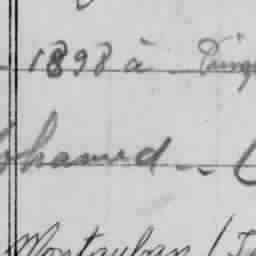 1898 à
ohamed
Montauban (T